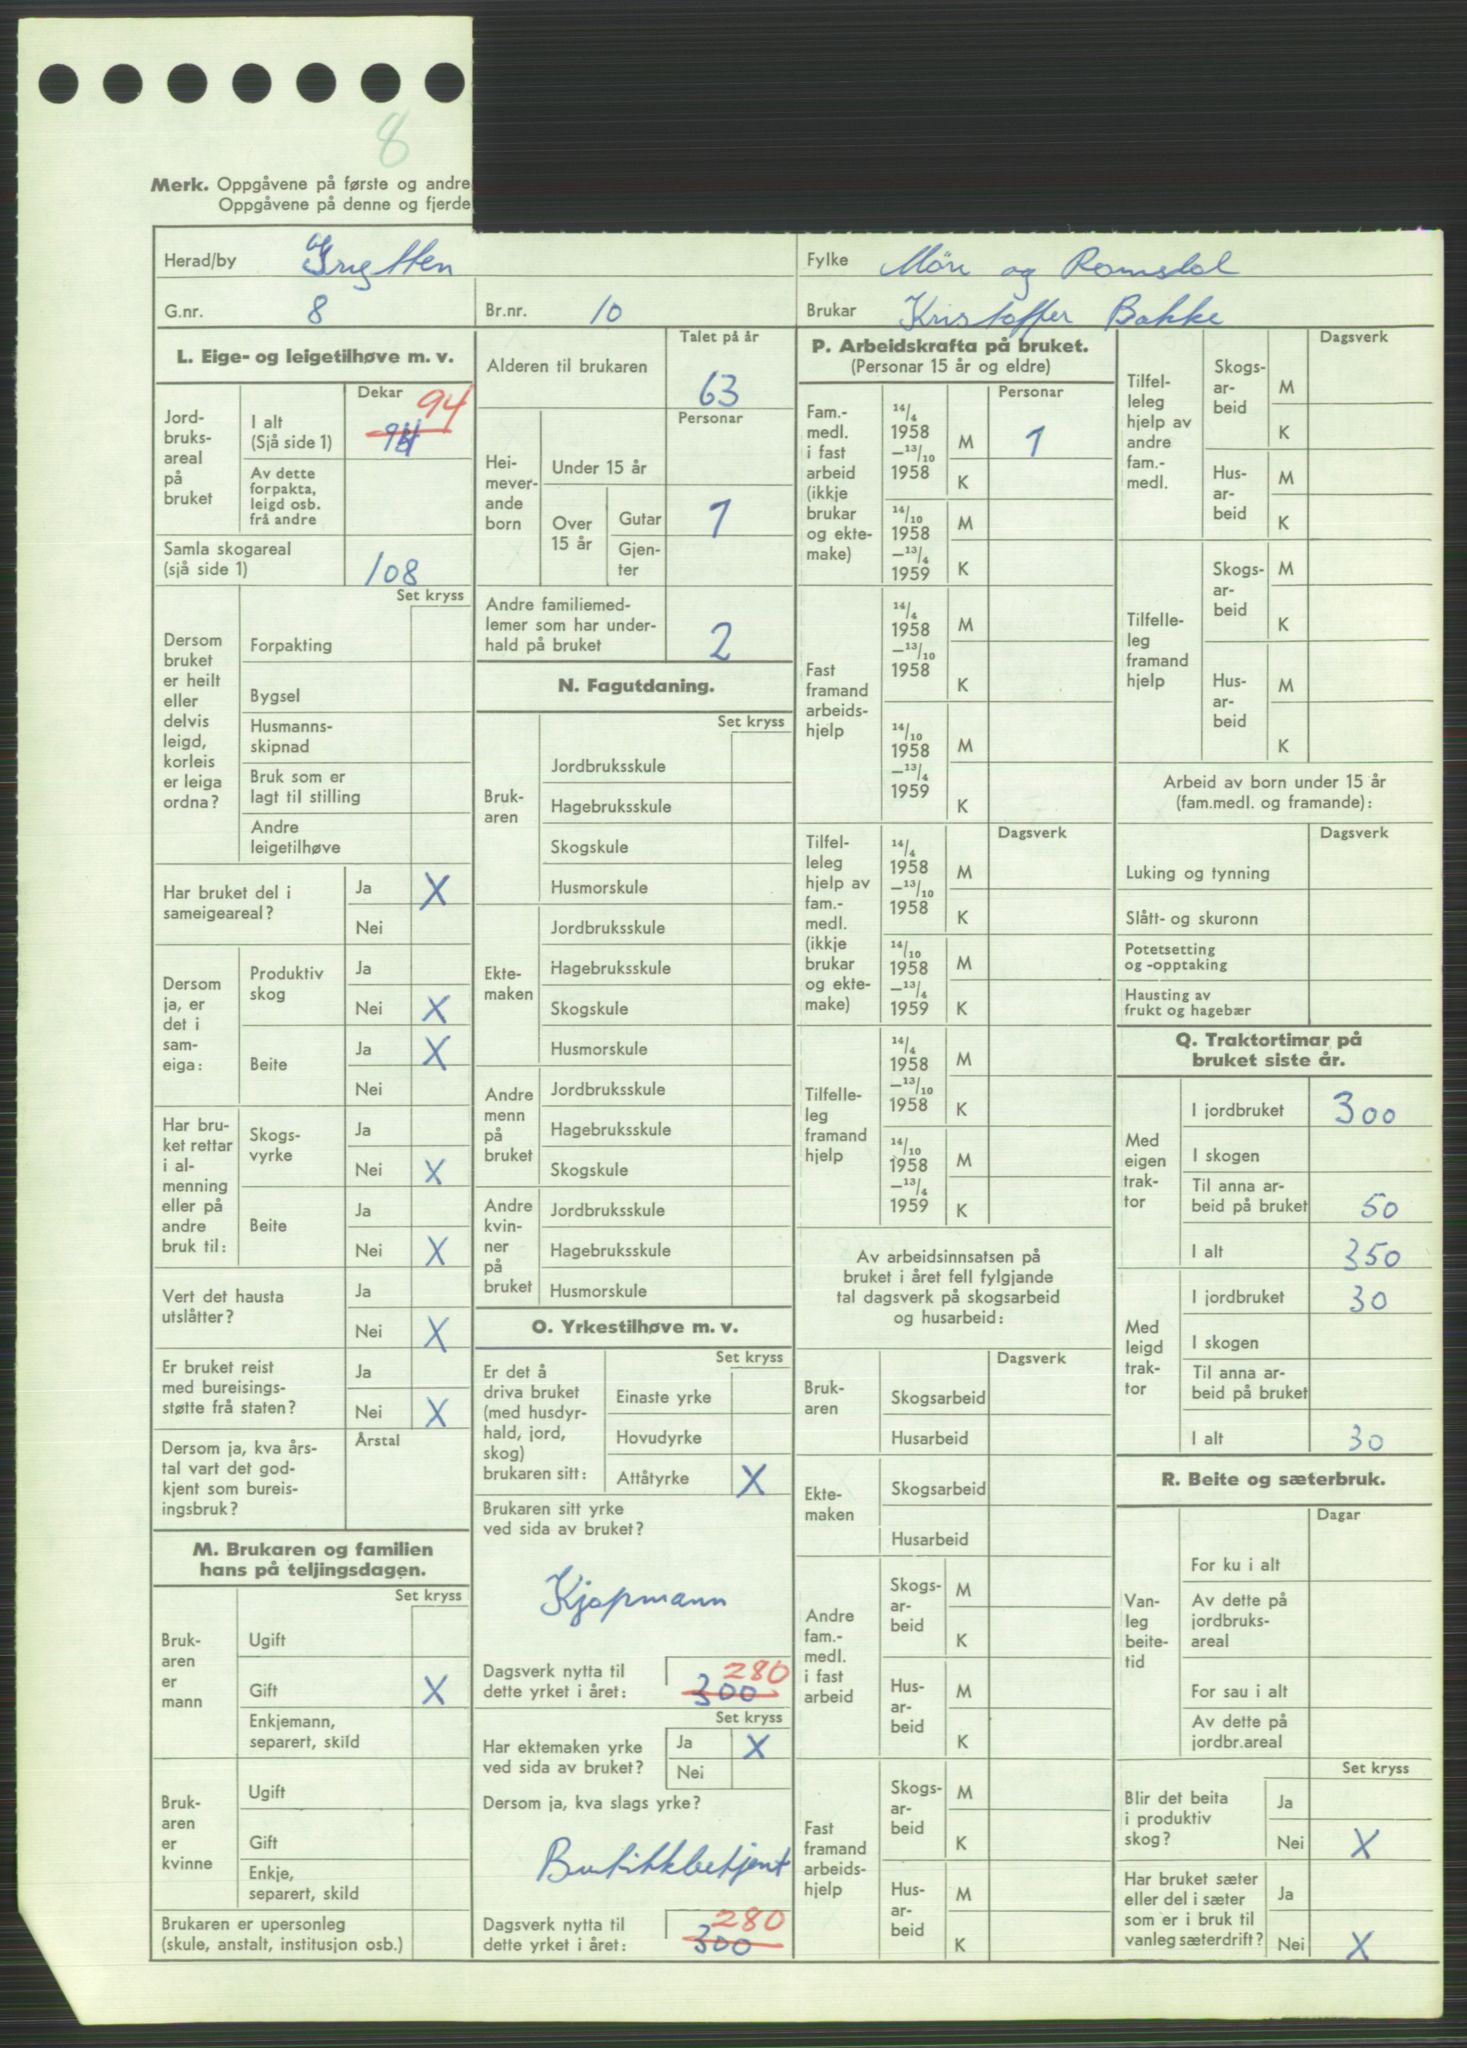 8
Merk. Oppgåvene på første og andre
Oppgåvene på denne og fjerde
Herad/by Grytten
Fylke Möre og Romsdal
G.nr. 8 Br.nr. 10
Brukar Kristoffer Bakke
L. Eige- og leigetilhøve m. v.
Dekar
Jord-
bruks-
areal
på
bruket
I alt
(Sjå side 1) 94
94
Av dette
forpakta,
leigd osb.
frå andre
Samla skogareal
(sjå side 1) 108
Set kryss
Dersom
bruket
er heilt
eller
delvis
leigd,
korleis
er leiga
ordna?
Forpakting
Bygsel
Husmanns-
skipnad
Bruk som er
lagt til stilling
Andre
leigetilhøve
Har bruket del i
sameigeareal?
Ja X
Nei
Dersom
ja, er
det i
sam-
eiga:
Produktiv
skog
Ja
Nei X
Beite
Ja X
Nei
Har bru-
ket rettar
i al-
menning
eller på
andre
bruk til:
Skogs-
vyrke
Ja
Nei X
Beite
Ja
Nei X
Vert det hausta
utslåtter?
Ja
Nei X
Er bruket reist
med bureisings-
støtte frå staten?
Ja
Nei X
Dersom ja, kva års-
tal vart det god-
kjent som bureis-
ingsbruk?
Årstal
M. Brukaren og familien
hans på teljingsdagen.
Set kryss
Bruk-
aren
er
mann
Ugift
Gift X
Enkjemann,
separert, skild
Bruk-
aren
er
kvinne
Ugift
Gift
Enkje,
separert, skild
Brukaren er upersonleg
(skule, anstalt, institusjon osb.)
Talet på år
Alderen til brukaren 63
Personar
Hei-
mever-
ande
born
Under 15 år
Over
15 år
Gutar 1
Gjen-
ter
Andre familiemed-
lemer som har under-
hald på bruket 2
N. Fagutdaning.
Set kryss
Bruk-
aren
Jordbruksskule
Hagebruksskule
Skogskule
Husmorskule
Ekte-
maken
Jordbruksskule
Hagebruksskule
Skogskule
Husmorskule
Andre
menn
på
bruket
Jordbruksskule
Hagebruksskule
Skogskule
Andre
kvin-
ner
på
bruket
Jordbruksskule
Hagebruksskule
Husmorskule
O. Yrkestilhøve m. v.
Set kryss
Er det å
driva bruket
(med husdyr-
hald, jord,
skog)
brukaren sitt:
Einaste yrke
Hovudyrke
Attåtyrke X
Brukaren sitt yrke
ved sida av bruket?
Kjøpmann
Dagsverk nytta til
dette yrket i året: 300 280
Set kryss
Har ektemaken yrke
ved sida av bruket?
Ja X
Nei
Dersom ja, kva slags yrke?
Butikkbetjent
Dagsverk nytta til
dette yrket i året: 300 280
P. Arbeidskrafta på bruket.
(Personar 15 år og eldre)
Personar
Fam.-
medl.
i fast
arbeid
(ikkje
brukar
og ekte-
make)
14/4
1958
–13/10
1958
M 1
K
14/10
1958
–13/4
1959
M
K
Fast
framand
arbeids-
hjelp
14/4
1958
–13/10
1958
M
K
14/10
1958
–13/4
1959
M
K
Dagsverk
Tilfel-
leleg
hjelp av
fam.-
medl.
(ikkje
brukar
og ekte-
make)
14/4
1958
–13/10
1958
M
K
14/10
1958
–13/4
1959
M
K
Tilfelle-
leg
framand
hjelp
14/4
1958
–13/10
1958
M
K
14/10
1958
–13/4
1959
M
K
Av arbeidsinnsatsen på
bruket i året fell fylgjande
tal dagsverk på skogsarbeid
og husarbeid:
Dagsverk
Bruk-
aren
Skogsarbeid
Husarbeid
Ekte-
maken
Skogsarbeid
Husarbeid
Andre
fam.-
medl.
i fast
arbeid
Skogs-
ar-
beid
M
K
Hus-
ar-
beid
M
K
Fast
framand
arbeids-
hjelp
Skogs-
ar-
beid
M
K
Hus-
ar-
beid
M
K
Dagsverk
Tilfel-
leleg
hjelp av
andre
fam.-
medl.
Skogs-
ar-
beid
M
K
Hus-
ar-
beid
M
K
Tilfelle-
leg
framand
hjelp
Skogs-
ar-
beid
M
K
Hus-
ar-
beid
M
K
Arbeid av born under 15 år
(fam.medl. og framande):
Dagsverk
Luking og tynning
Slått- og skuronn
Potetsetting
og -opptaking
Hausting av
frukt og hagebær
Q. Traktortimar på
bruket siste år.
Med
eigen
trak-
tor
I jordbruket 300
I skogen
Til anna ar-
beid på bruket 50
I alt 350
Med
leigd
trak-
tor
I jordbruket 30
I skogen
Til anna ar-
beid på bruket
I alt 30
R. Beite og sæterbruk.
Dagar
Van-
leg
beite-
tid
For ku i alt
Av dette på
jordbruks-
areal
For sau i alt
Av dette på
jordbr.areal
Set kryss
Blir det beita
i produktiv
skog?
Ja
Nei X
Har bruket sæter
eller del i sæter
som er i bruk til
vanleg sæterdrift?
Ja
Nei X